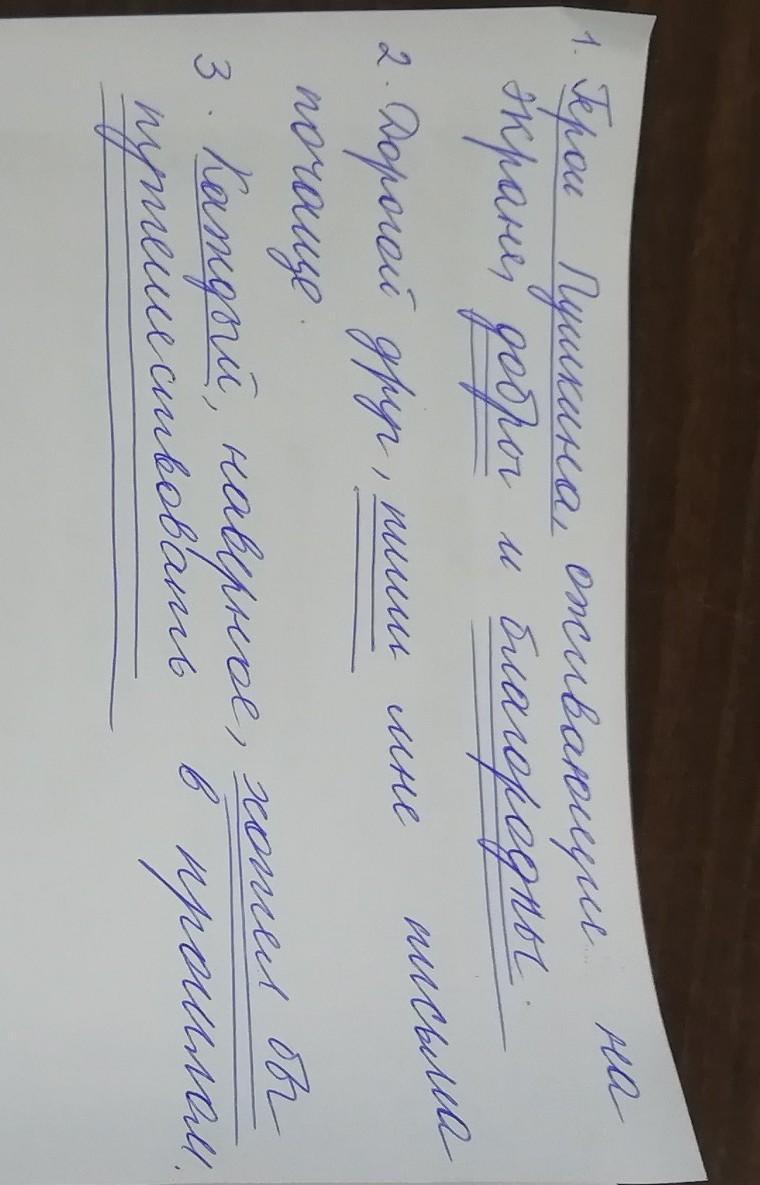 1. Герои Пушкина, оживающие на
экране, добры и благородны.
2. Дорогой друг, пиши мне письма
почаще.
3. Каждый, наверное, хотел бы
путешествовать в прошлом.